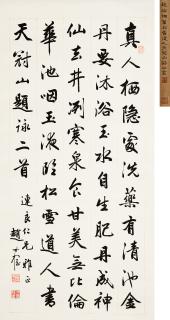 真人栖隐處洗藥有清池金
丹要沐浴玉水自生肥丹成神
仙去井冽寒泉食甘美無比倫
華池咽玉液臨松雪道人書
天冠山題詠二首
連良仁兄雅正
趙